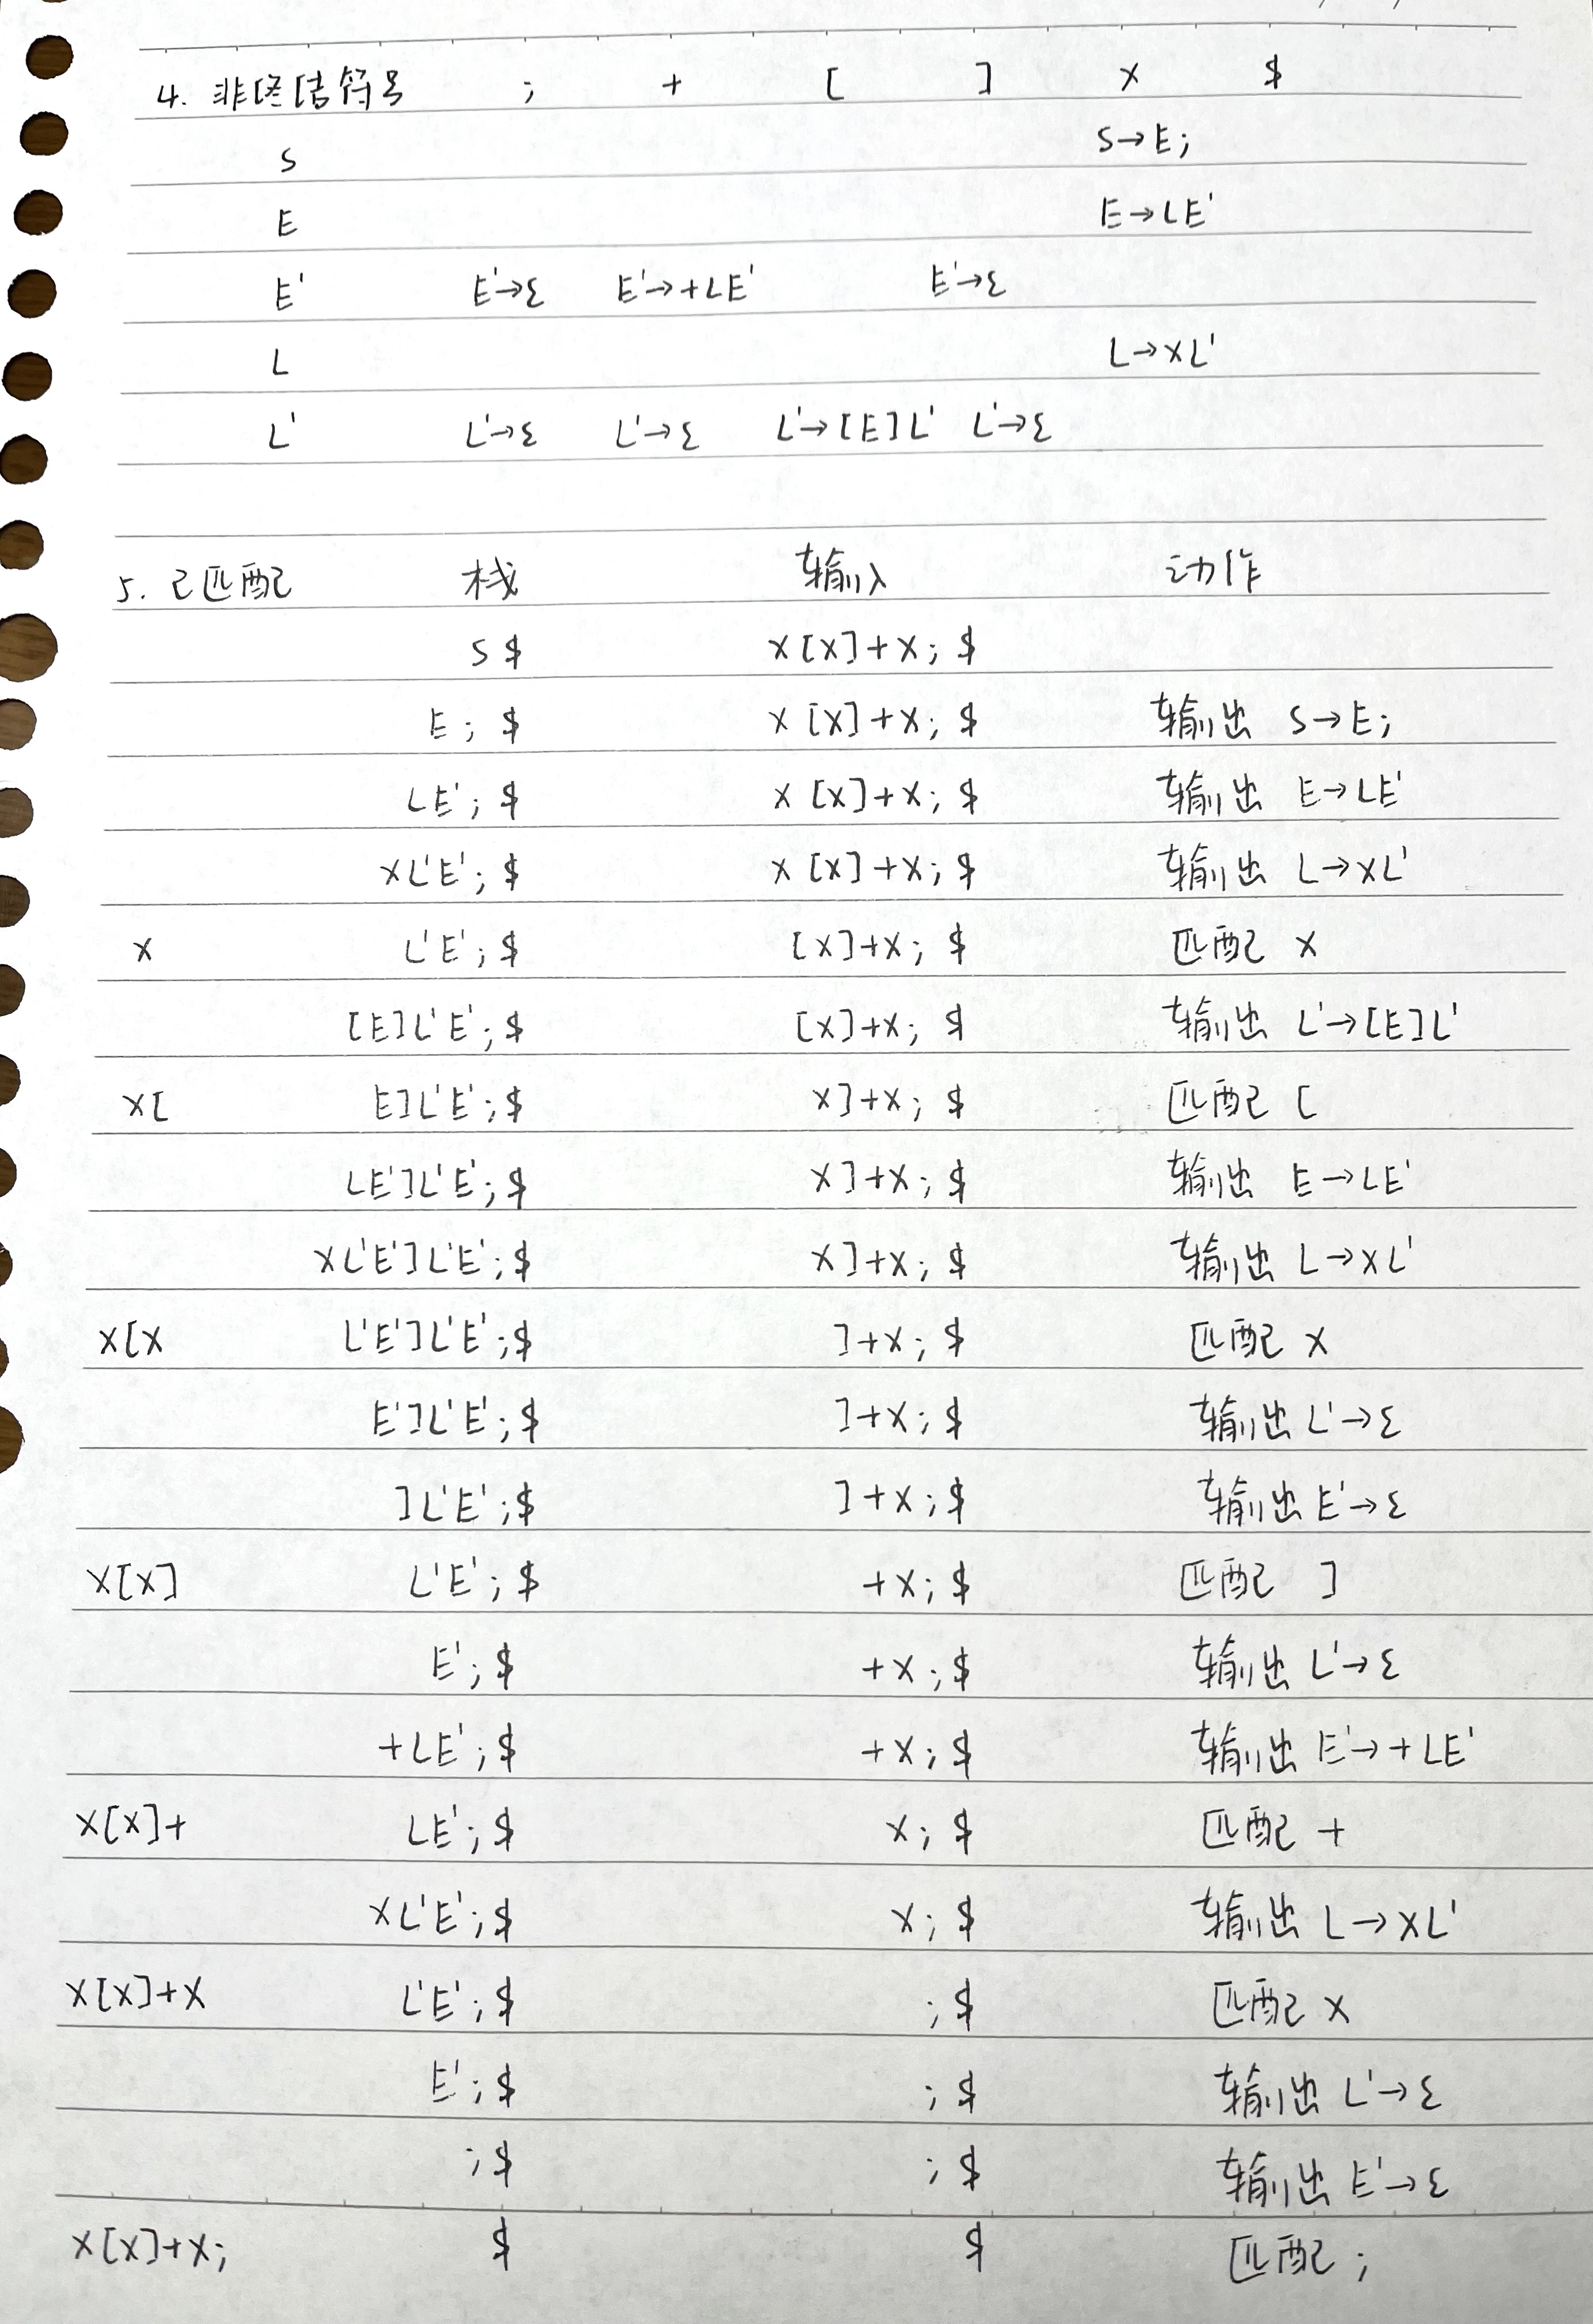 4. 非终结符号 ; + [ ] x $
S S→E;
E E→LE'
E' E'→ε E'→+LE' E'→ε
L L→xL'
L' L'→ε L'→ε L'→[E]L' L'→ε
5. 已匹配 栈 输入 动作
S$ x[x]+x;$
E;$ x[x]+x;$ 输出 S→E;
LE';$ x[x]+x;$ 输出 E→LE'
xL'E';$ x[x]+x;$ 输出 L→xL'
x L'E';$ [x]+x;$ 匹配 x
[E]L'E';$ [x]+x;$ 输出 L'→[E]L'
x[ E]L'E';$ x]+x;$ 匹配 [
LE']L'E';$ x]+x;$ 输出 E→LE'
xL'E']L'E';$ x]+x;$ 输出 L→xL'
x[x L'E']L'E';$ ]+x;$ 匹配 x
E']L'E';$ ]+x;$ 输出 L'→ε
]L'E';$ ]+x;$ 输出 E'→ε
x[x] L'E';$ +x;$ 匹配 ]
E';$ +x;$ 输出 L'→ε
+LE';$ +x;$ 输出 E'→+LE'
x[x]+ LE';$ x;$ 匹配 +
xL'E';$ x;$ 输出 L→xL'
x[x]+x L'E';$ ;$ 匹配 x
E';$ ;$ 输出 L'→ε
;$ ;$ 输出 E'→ε
x[x]+x; $ $ 匹配 ;